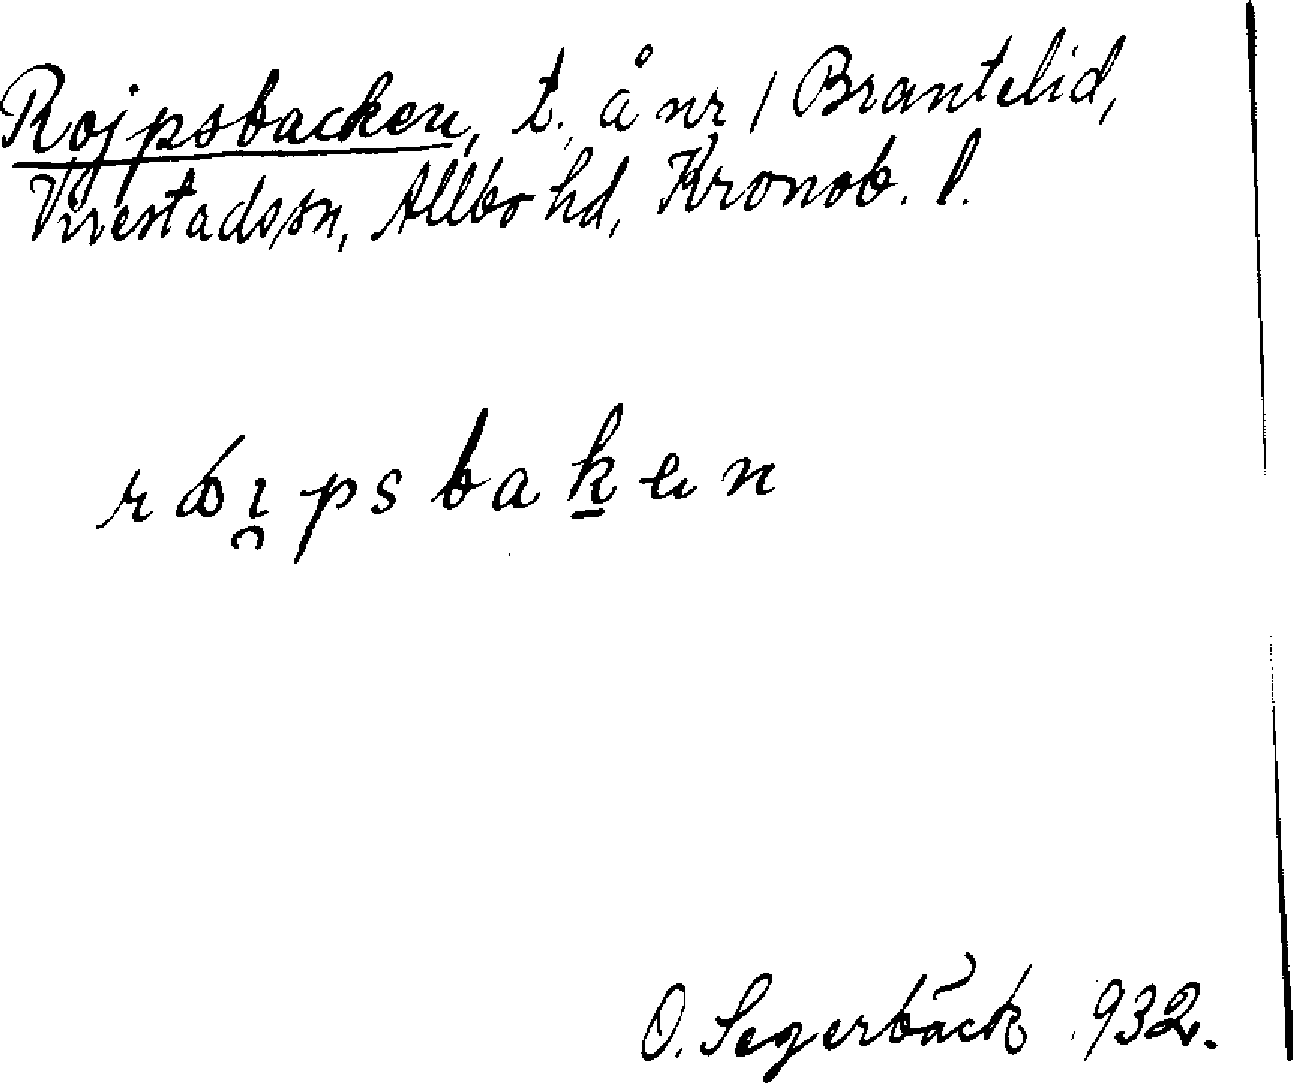 Rojpsbacken, t. å nr 1 Brantelid,
Virestadssn, Allbo hd, Kronob. l.
rɷi̯psbaken
O. Segerbäck 932.